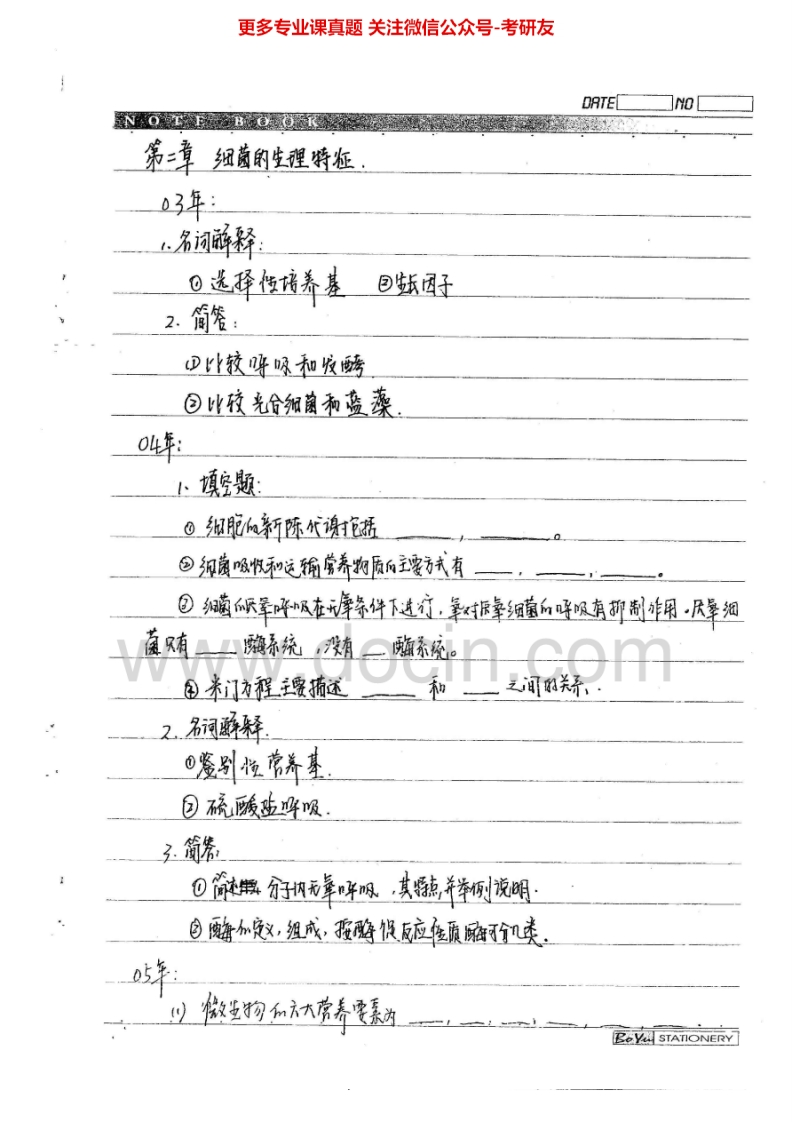 更多专业课真题 关注微信公众号-考研友
DATE NO
NOTE BOOK
第二章 细菌的生理特征.
03年:
1.名词解释:
① 选择性培养基 ②生长因子
2. 简答:
①比较呼吸和发酵
②比较光合细菌和蓝藻.
04年:
1. 填空题:
① 细胞的新陈代谢包括 ____, ____。
②细菌吸收和运输营养物质的主要方式有 ____, ____, ____。
③ 细菌的厌氧呼吸在无氧条件下进行,氧对厌氧细菌的呼吸有抑制作用。厌氧细
菌只有 ____ 酶系统,没有 __ 酶系统。
www.docin.com
④ 米门方程主要描述 ____ 和 ___ 之间的关系.
2. 名词解释.
①鉴别性营养基.
② 硫酸盐呼吸.
3. 简答:
①简述 分子内无氧呼吸,其特点,并举例说明.
② 酶的定义,组成,按酶促反应性质酶可分几类.
05年:
(1) 微生物的六大营养要素为 __, __, __, __, __, __
BoYu STATIONERY